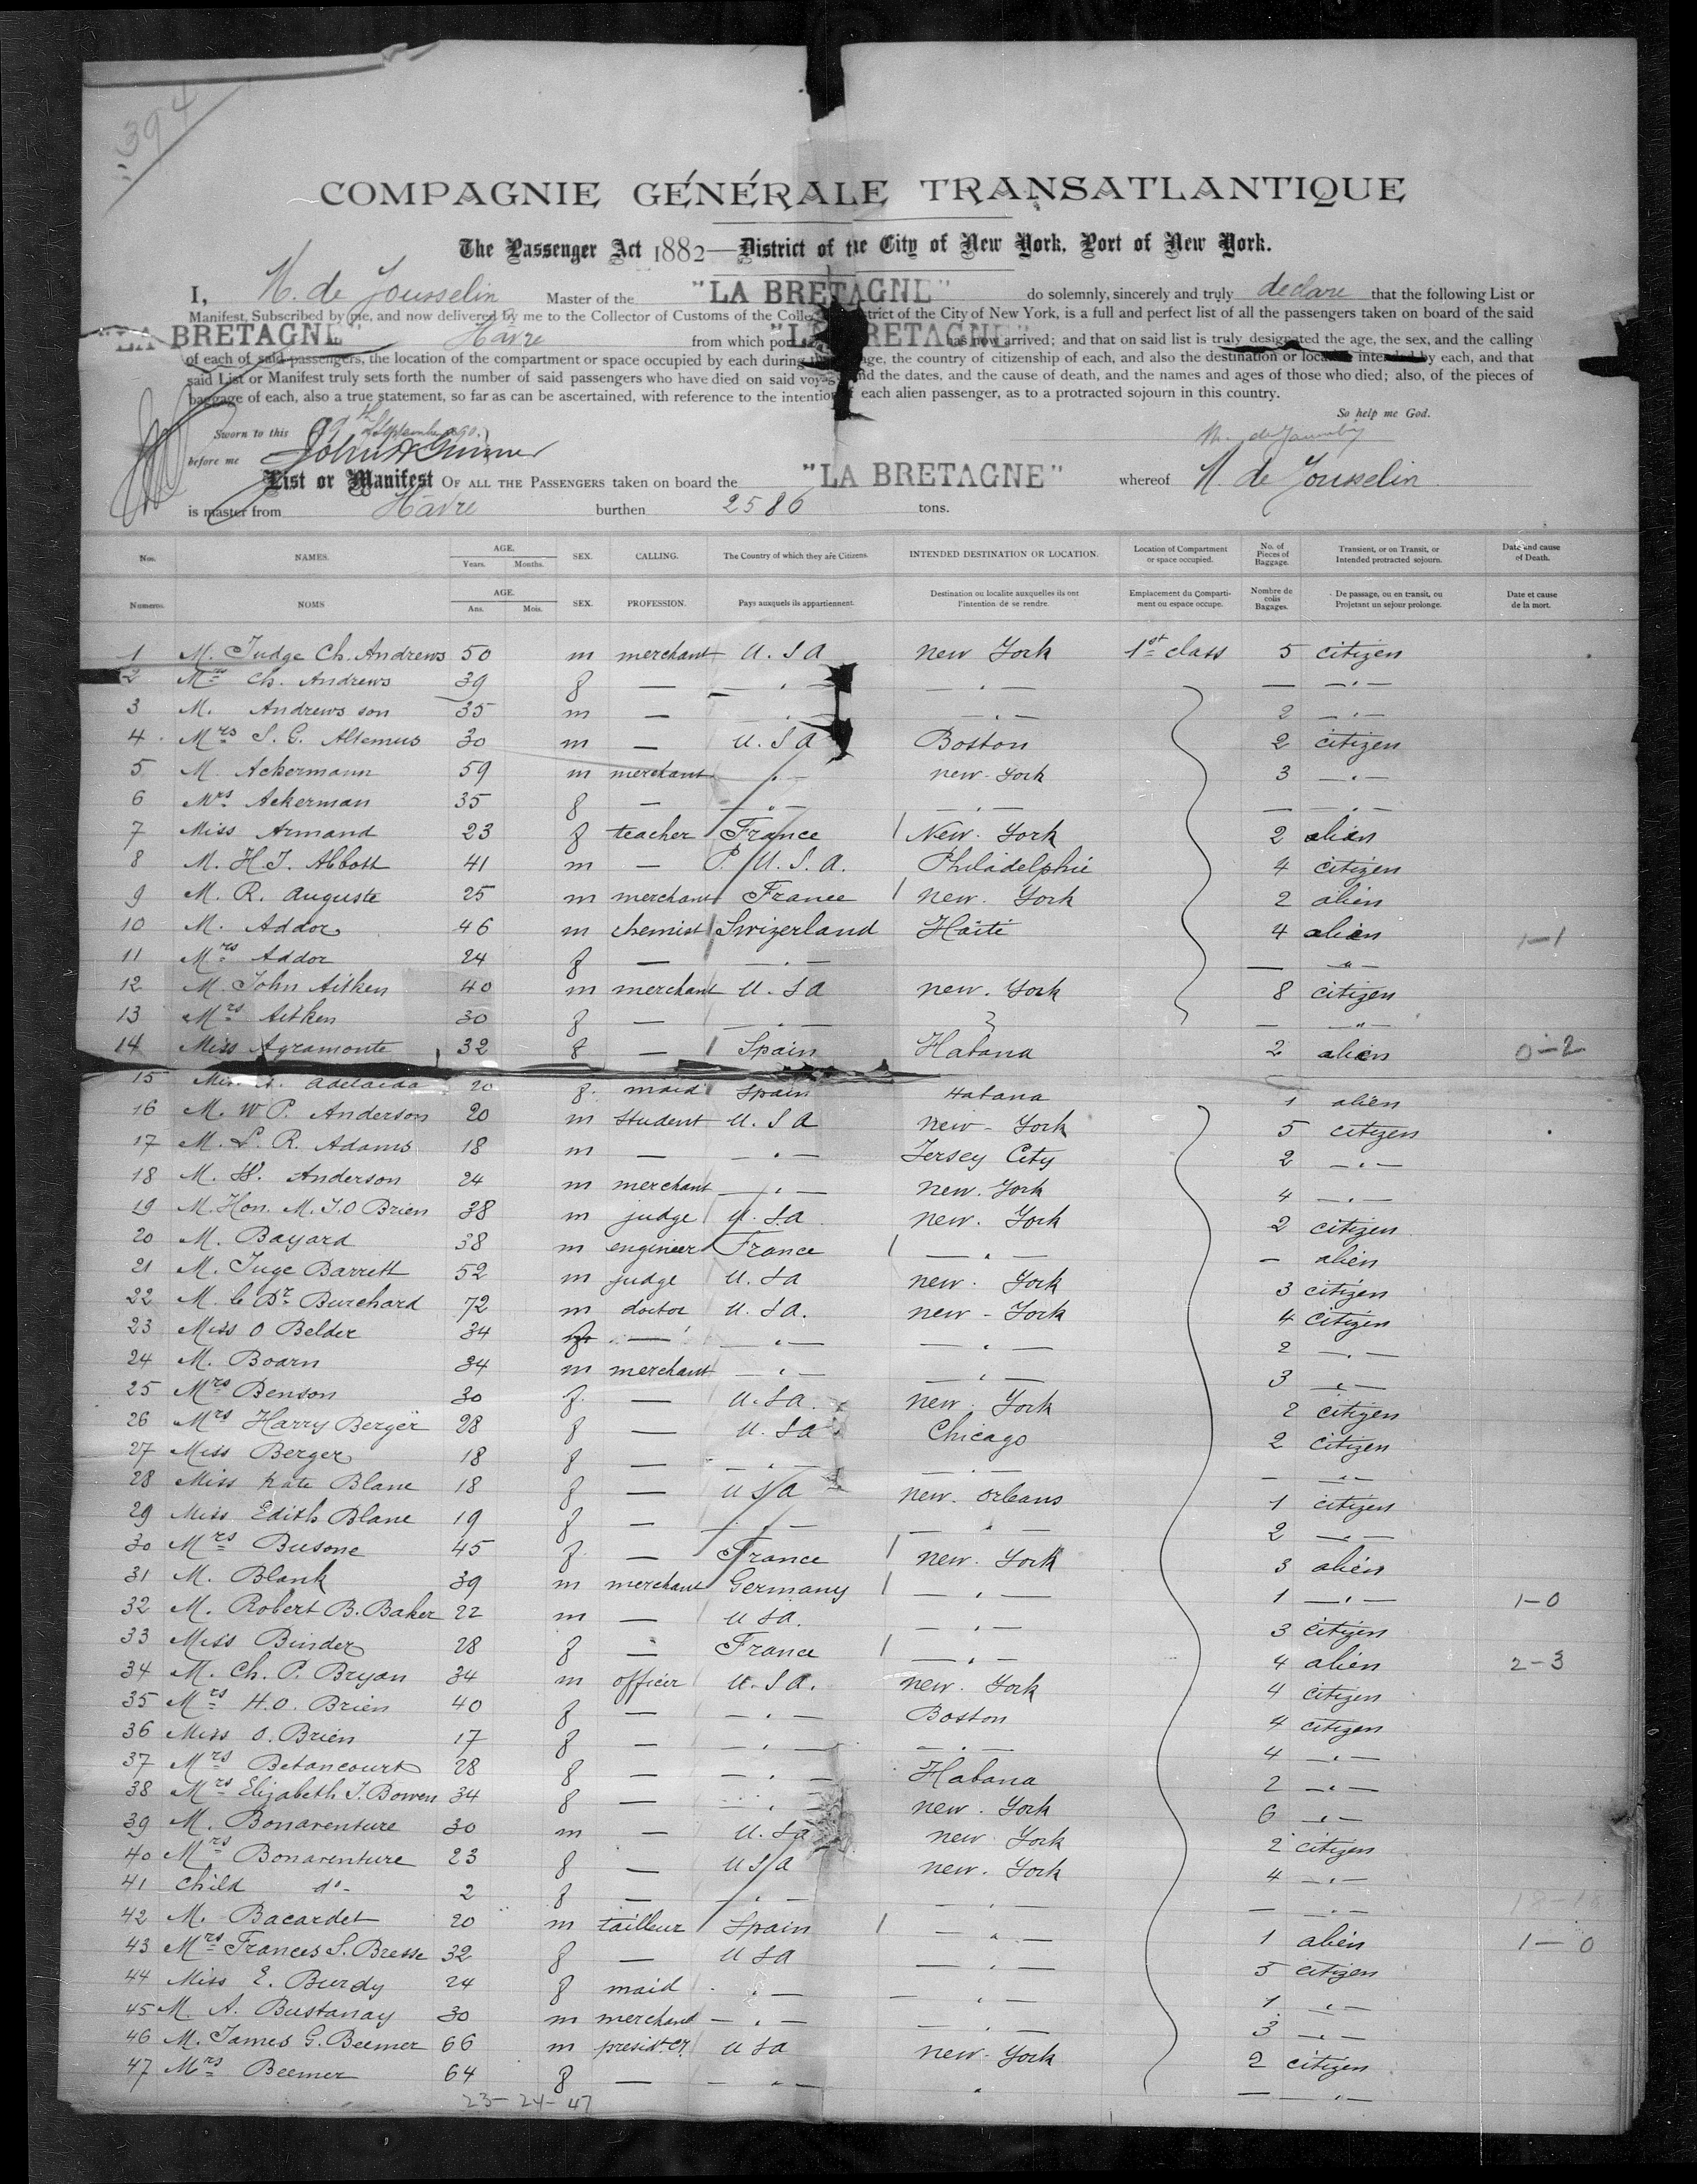 394
COMPAGNIE GÉNÉRALE TRANSATLANTIQUE
The Passenger Act 1882—District of the City of New York, Port of New York.
I, N. de Jousselin Master of the "LA BRETAGNE" do solemnly, sincerely and truly declare that the following List or
Manifest, Subscribed by me, and now delivered by me to the Collector of Customs of the Collec strict of the City of New York, is a full and perfect list of all the passengers taken on board of the said
"LA BRETAGNE" Havre from which port "LA BRETAGNE" has now arrived; and that on said list is truly designated the age, the sex, and the calling
of each of said passengers, the location of the compartment or space occupied by each during the age, the country of citizenship of each, and also the destination or location intended by each, and that
said List or Manifest truly sets forth the number of said passengers who have died on said voyage and the dates, and the cause of death, and the names and ages of those who died; also, of the pieces of
baggage of each, also a true statement, so far as can be ascertained, with reference to the intention of each alien passenger, as to a protracted sojourn in this country.
So help me God.
Sworn to this September
before me
List or Manifest OF ALL THE PASSENGERS taken on board the "LA BRETAGNE" whereof N. de Jousselin
is master from Havre burthen 2586 tons.
Nos. NAMES. AGE. Years. Months. SEX. CALLING. The Country of which they are Citizens. INTENDED DESTINATION OR LOCATION. Location of Compartment or space occupied. No. of Pieces of Baggage. Transient, or on Transit, or Intended protracted sojourn. Date and cause of Death.
Numeros. NOMS AGE. Ans. Mois. SEX. PROFESSION. Pays auxquels ils appartiennent. Destination ou localite auxquelles ils ont l'intention de se rendre. Emplacement du Compartiment ou espace occupe. Nombre de colis Bagages. De passage, ou en transit, ou Projetant un sejour prolonge. Date et cause de la mort.
1 M. Judge Ch. Andrews 50 m merchant U.S.A new York 1st class 5 citizen
2 Mrs Ch. Andrews 39 f — — . — — . — — — . —
3 M. Andrews son 35 m — — . — — . — 2 — . —
4 Mrs S. G. Altemus 30 m — U.S.A Boston 2 citizen
5 M. Ackermann 59 m merchant . — new-York 3 — . —
6 Mrs Ackerman 35 f — — . — — . — — — . —
7 Miss Armand 23 f teacher France New-York 2 alien
8 M. H. J. Abbott 41 m — P. U.S.A. Philadelphie 4 citizen
9 M. R. Auguste 25 m merchant France new. York 2 alien
10 M. Addor 46 m chemist Swizerland Haïti 4 alien 1-1
11 Mrs Addor 24 f — — . — — — " —
12 M John Aitken 40 m merchant U.S.A new. York 8 citizen
13 Mrs Aitken 30 f — — . — — — " —
14 Miss Agramonte 32 f — Spain Habana 2 alien 0-2
15 Adelaida 20 f. maid Spain Habana 1 alien
16 M. W. P. Anderson 20 m student U.S.A new-York 5 citizen
17 M. L. R. Adams 18 m — — . — Jersey City 2 — . —
18 M. W. Anderson 24 m merchant — . — new. York 4 — . —
19 M. Hon. M. J. O Brien 38 m judge U.S.A new. York 2 citizen
20 M. Bayard 38 m engineer France — . — - alien
21 M. Juge Barrett 52 m judge U.S.A new. York 3 citizen
22 M. C Dr. Burchard 72 m doctor U.S.A. new-York 4 citizen
23 Miss O Belder 34 f — — . — — . — 2 — . —
24 M. Boarn 34 m merchant — . — — . — 3 — . —
25 Mrs Benson 30 f. — U.S.A. new. York 2 citizen
26 Mrs Harry Berger 28 f — U.S.A Chicago 2 citizen
27 Miss Berger 18 f — — . — — . — - — " —
28 Miss Kate Blane 18 f — U S A new. orleans 1 citizen
29 Miss Edith Blane 19 f — — . — — . — 2 — . —
30 Mrs Busone 45 f. — France new. York 3 alien
31 M. Blank 39 m merchant Germany — . — 1 — . — 1-0
32 M. Robert B. Baker 22 m — U S A. — . — 3 citizen
33 Miss Binder 28 f — France — . — 4 alien 2-3
34 M. Ch. P. Bryan 34 m officer U.S.A. new. York 4 citizen
35 Mrs H. O. Brien 40 f — — . — Boston 4 citizen
36 Miss O. Brien 17 f — — . — — . — 4 — . —
37 Mrs Betancourt 28 f — — . — Habana 2 — . —
38 Mrs Elizabeth J. Bowen 34 f — . — new. York 6 — . —
39 M. Bonaventure 30 m — U.S.A new York 2 citizen
40 Mrs Bonaventure 23 f — U S A new. York 4 — . —
41 Child do- 2 f — — . — — . — — — . —
42 M. Bacardet 20 m tailleur Spain — . — 1 alien 1-0
43 Mrs Frances S. Bresse 32 f — U S A — . — 5 citizen
44 Miss E. Burdy 24 f maid . — — . — 1 — . —
45 M A. Bustanay 30 m merchand — . — — . — 3 — . —
46 M. James G. Beemer 66 m U S A new-York 2 citizen
47 Mrs Beemer 64 f — — " — " — — . —
23-24-47